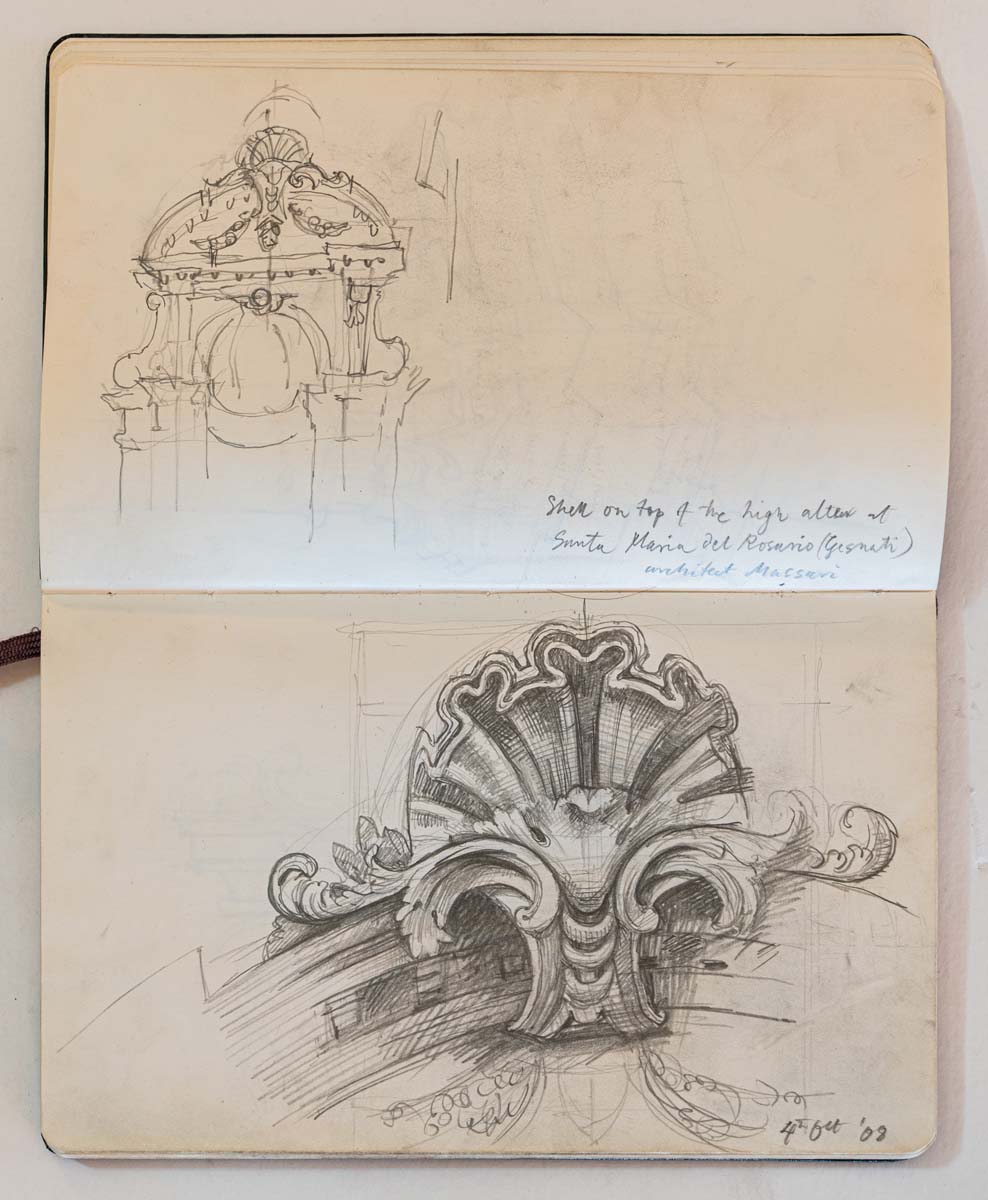 Shell on top of the high altar at
Santa Maria del Rosario (Gesuati)
architect Massari
4th Oct '08